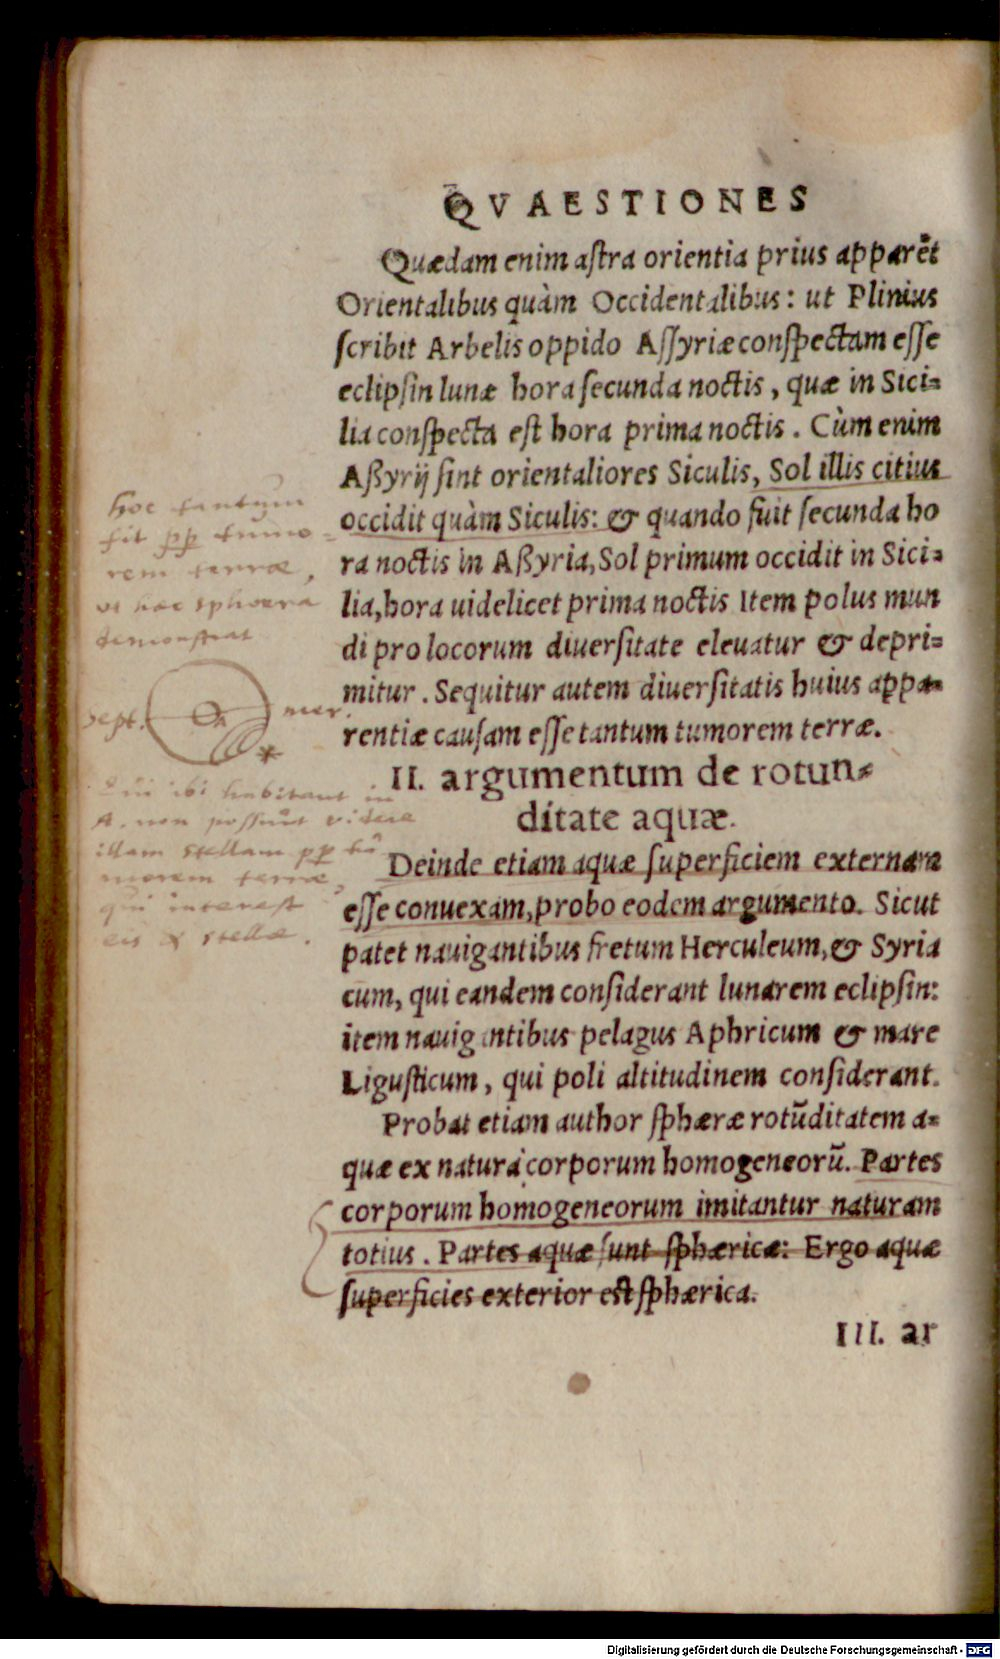 QVAESTIONES
Quædam enim aſtra orientia prius apparēt
Orientalibus quàm Occidentalibus: ut Plinius
ſcribit Arbelis oppido Aſſyriæ conſpectam eſſe
eclipſin lunæ hora ſecunda noctis, quæ in Sici-
lia conſpecta eſt hora prima noctis. Cùm enim
Aßyrij ſint orientaliores Siculis, Sol illis citius
occidit quàm Siculis: & quando fuit ſecunda ho
ra noctis in Aßyria, Sol primum occidit in Sici-
lia, hora uidelicet prima noctis Item polus mun
di pro locorum diuerſitate eleuatur & depri-
mitur. Sequitur autem diuerſitatis huius appa-
rentiæ cauſam eſſe tantum tumorem terræ.
hoc tantum
fit pp tumo-
rem terræ,
ut hæc sphæra
demonstrat
sept. A mer.
Qui ibi habitant in
A. non possunt videre
illam stellam pp tu
morem terræ,
qui interest
eis & stellæ.
II. argumentum de rotun-
ditate aquæ.
Deinde etiam aquæ ſuperficiem externam
eſſe conuexam, probo eodem argumento. Sicut
patet nauigantibus fretum Herculeum, & Syria
cum, qui eandem conſiderant lunarem eclipſin:
item nauigantibus pelagus Aphricum & mare
Liguſticum, qui poli altitudinem conſiderant.
Probat etiam author ſphæræ rotūditatem a-
quæ ex natura corporum homogeneorū. Partes
corporum homogeneorum imitantur naturam
totius. Partes aquæ ſunt ſphæricæ: Ergo aquæ
ſuperficies exterior eſt ſphærica.
III. ar
Digitalisierung gefördert durch die Deutsche Forschungsgemeinschaft - DFG